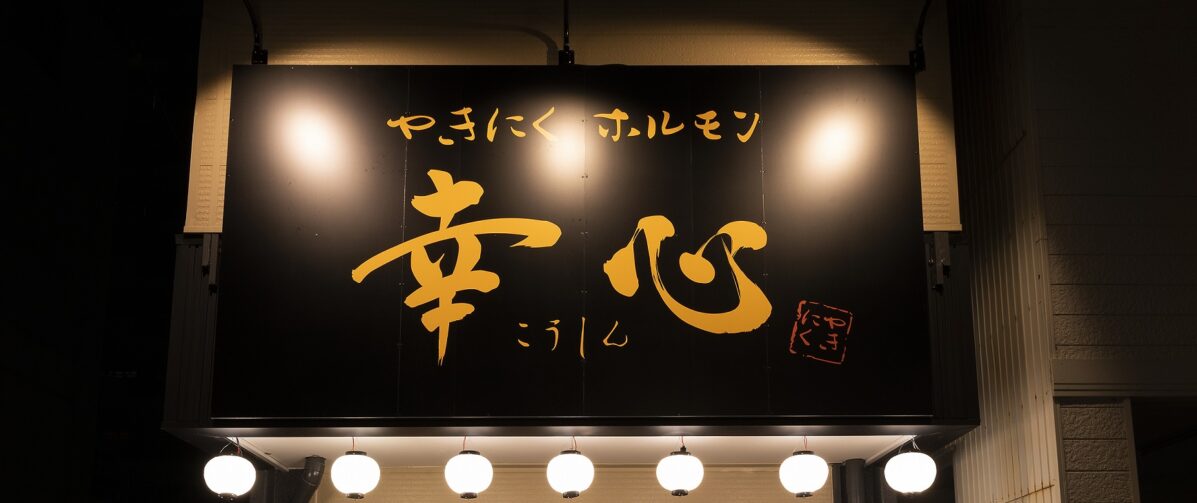 やきにく ホルモン
幸心
こうしん
やき
にく